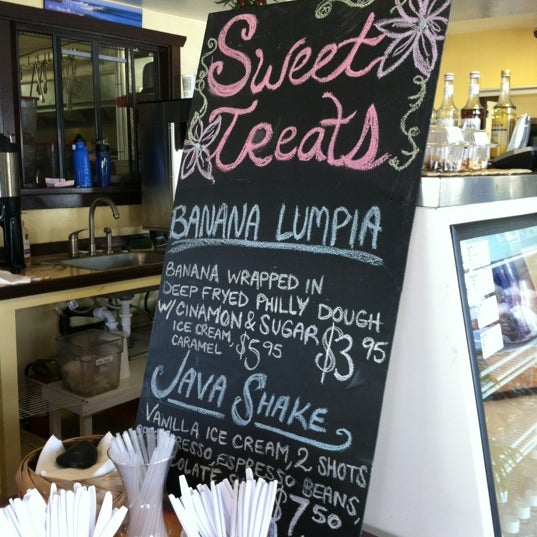 Sweet
Treats
BANANA LUMPIA
BANANA WRAPPED IN
DEEP FRYED PHILLY DOUGH
W/ CINAMON & SUGAR $3.95
ICE CREAM,
CARAMEL $5.95
JAVA SHAKE
VANILLA ICE CREAM, 2 SHOTS
ESPRESSO ESPRESSO BEANS,
$7.50